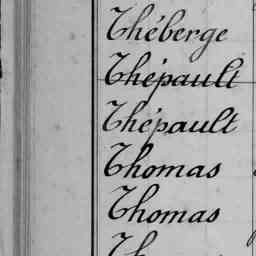 Théberge
Thépault
Thépault
Thomas
Thomas